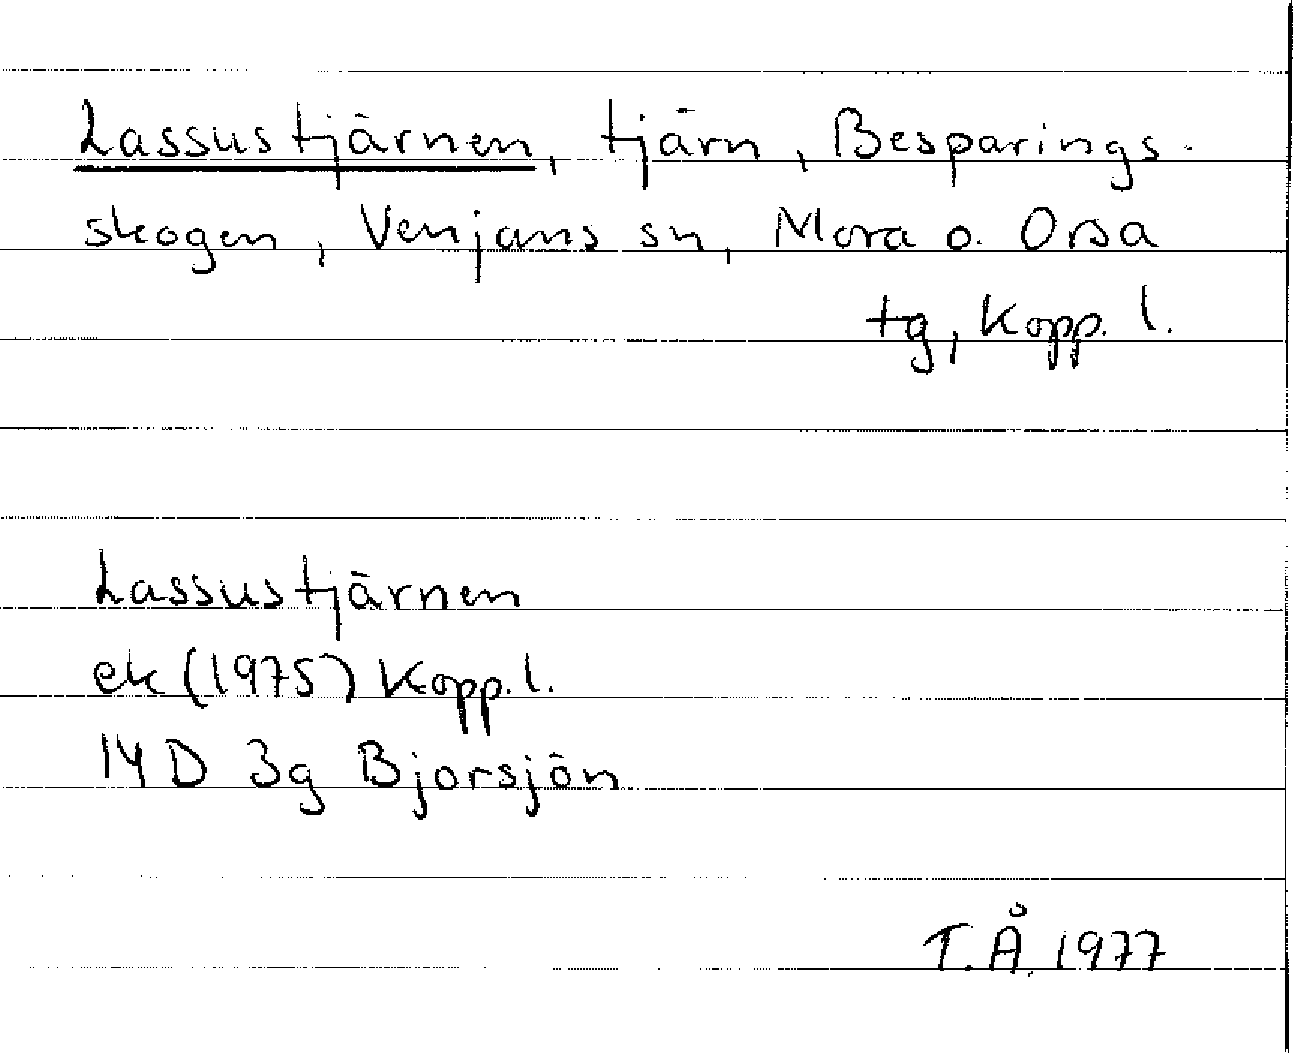 Lassustjärnen, tjärn, Besparings-
skogen, Venjans sn, Mora o. Orsa
tg, Kopp. l.
Lassustjärnen
ek (1975) Kopp. l.
14 D 3g Bjorsjön
T.Å. 1977